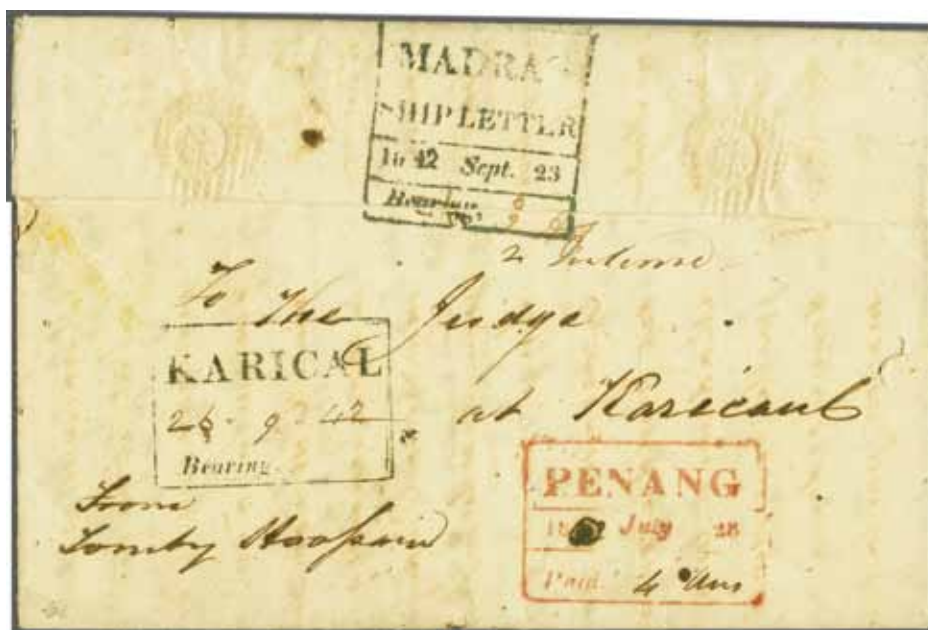 MADRA
SHIP LETTER
1842 Sept. 23
Bearing
To
The Judge
at Karicaul
KARICAL
26 9 42
Bearing.
From
PENANG
18 July 28
Paid. 4 Ans